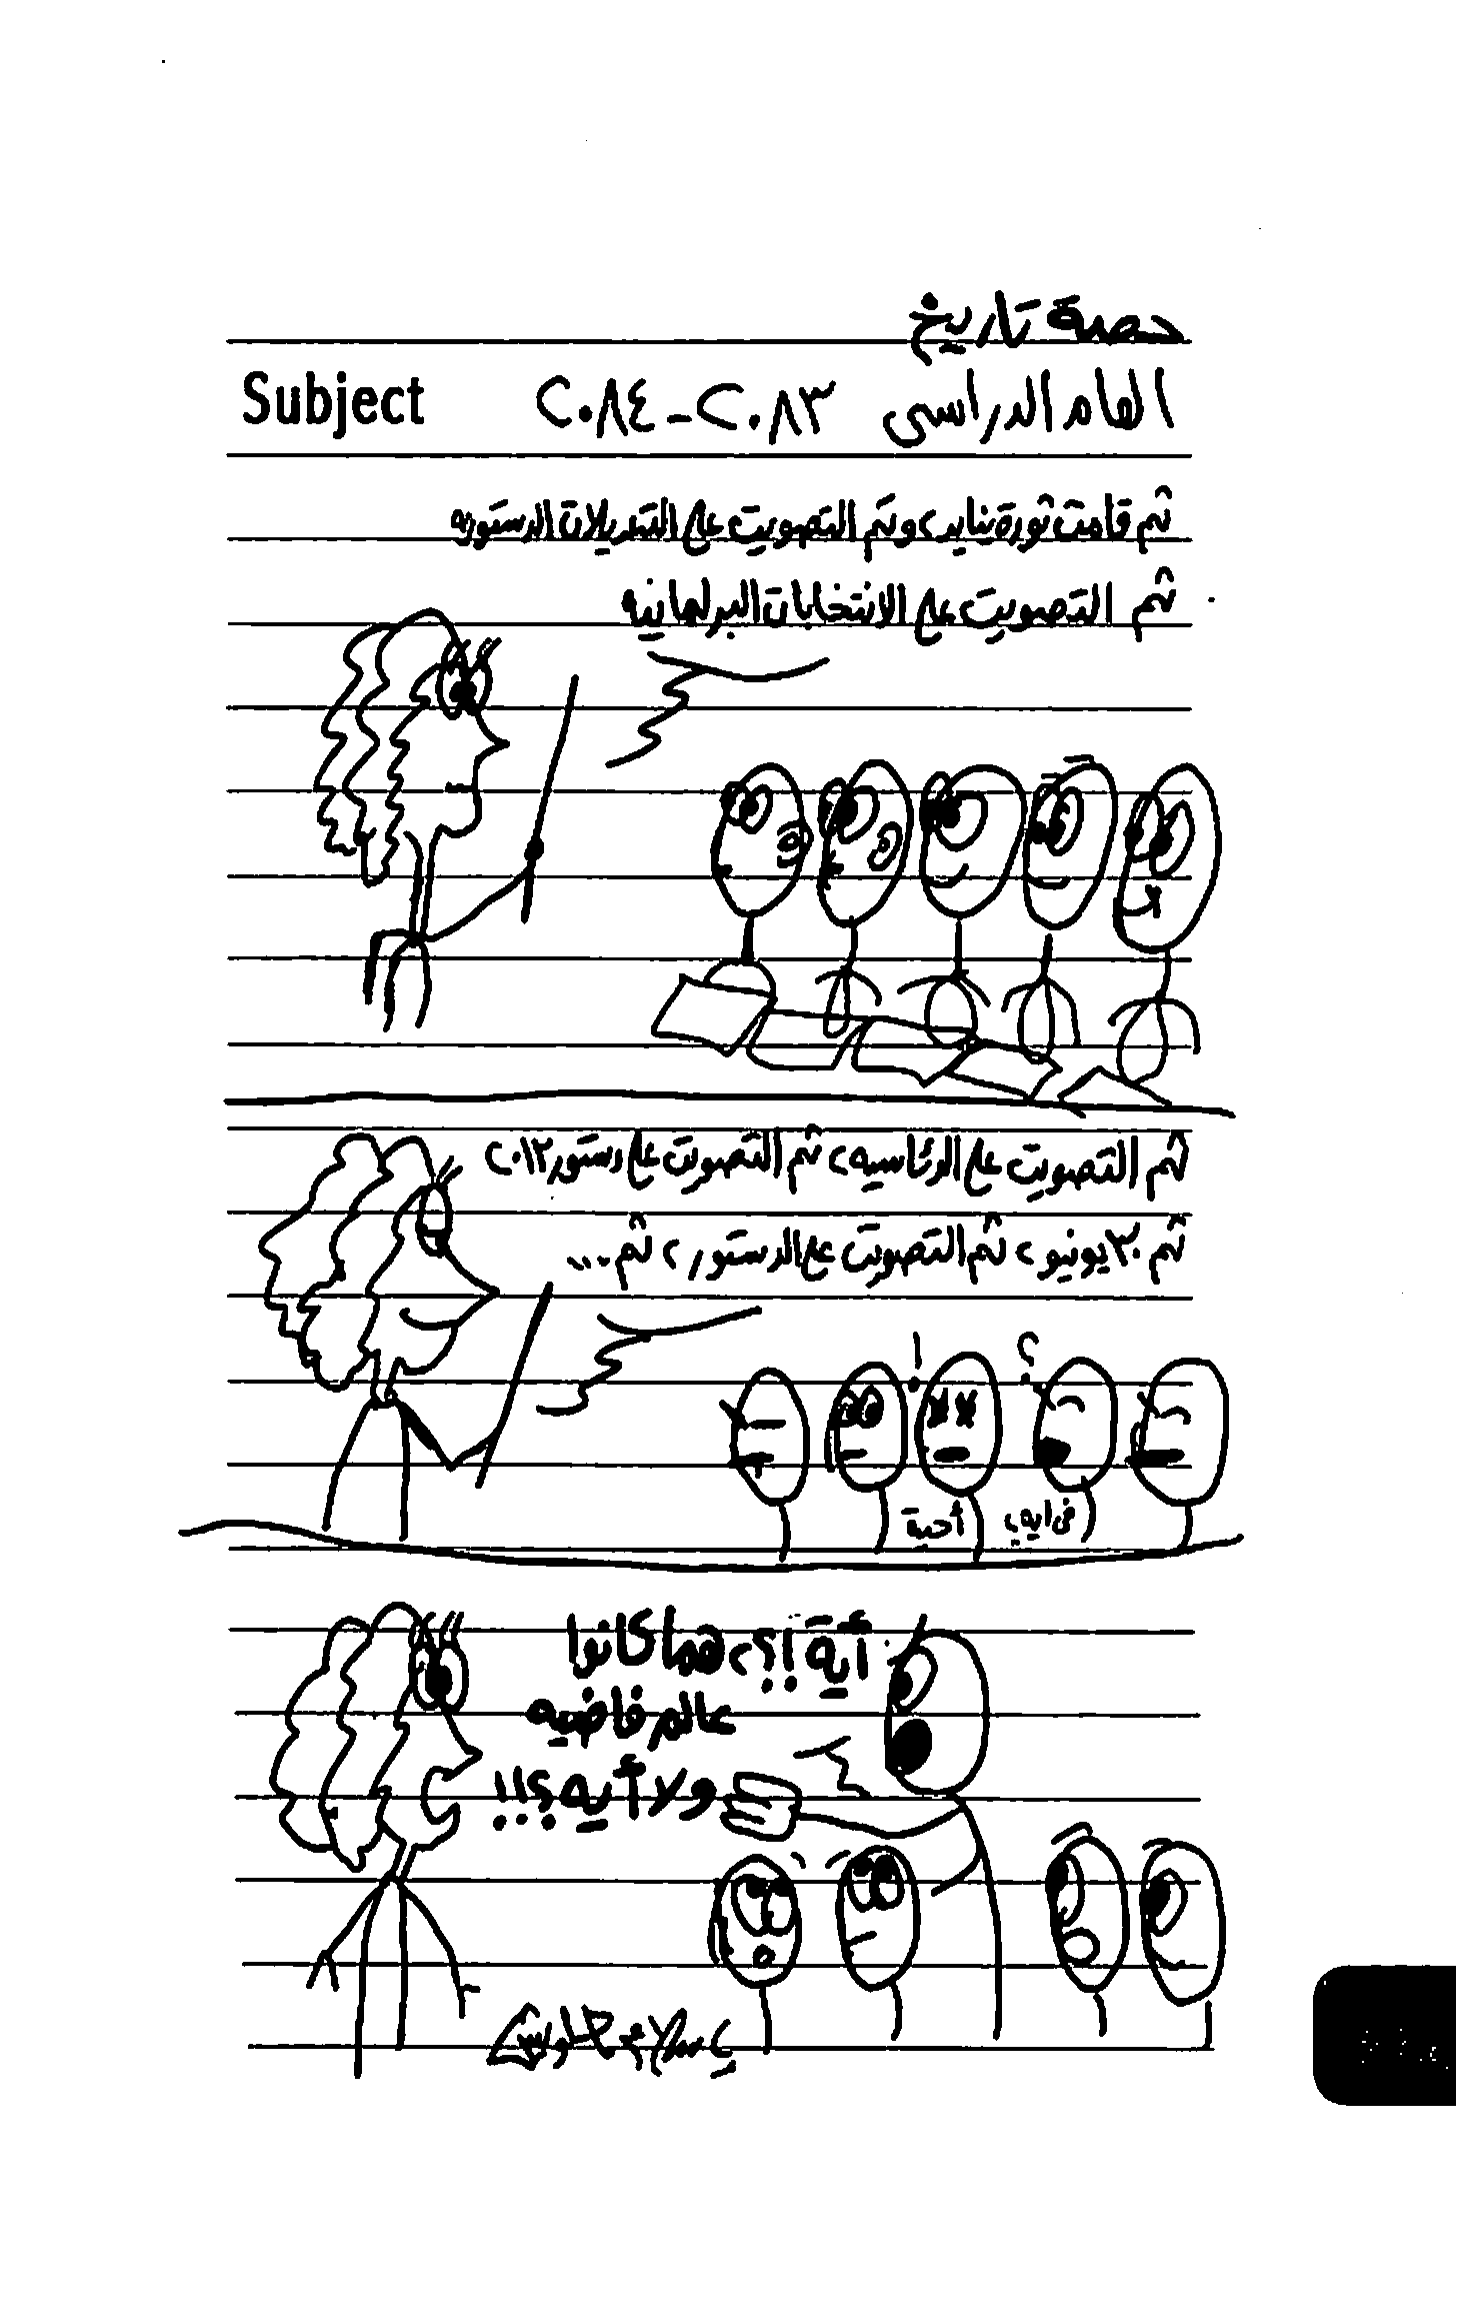 حصة تاريخ
العام الدراسى ٢٠٨٣ - ٢٠٨٤
Subject
ثم قامت ثورة يناير، وتم التصويت على التعديلات الدستوريه
ثم التصويت على الانتخابات البرلمانيه
ثم التصويت على الرئاسيه، ثم التصويت على دستور ٢٠١٢
ثم ٣٠ يونيو، ثم التصويت على الدستور، ثم ...
!
؟
فى ايه،
أحيه
أيه !؟، هما كانوا
عالم فاضيه
ولا أيه؟!!